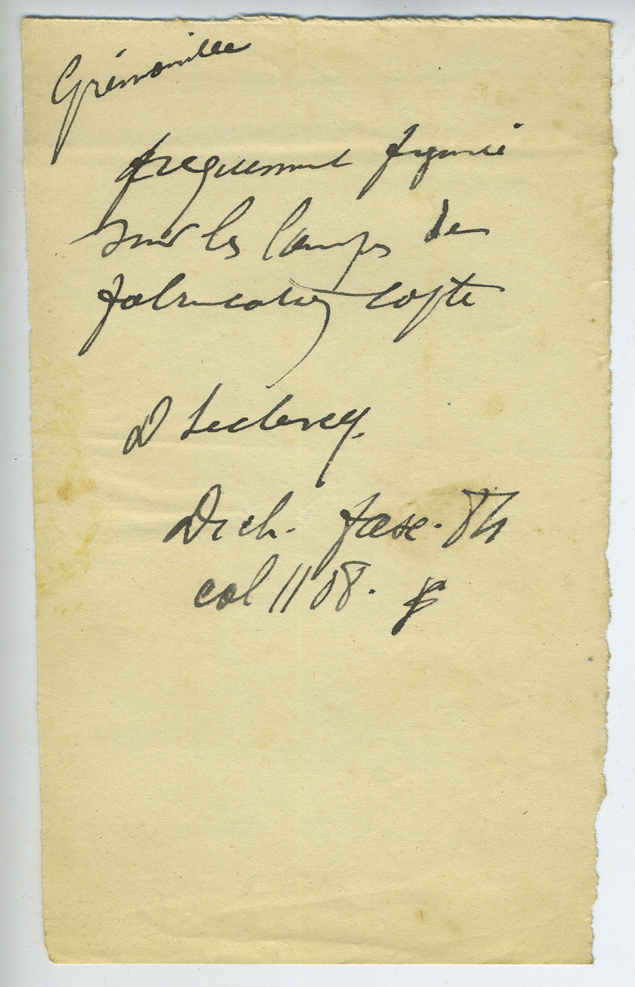 Grenouille
fréquemment figuré
sur les lampes de
fabrication copte
D Leclercq.
Dich. fasc. 84
col 1108.